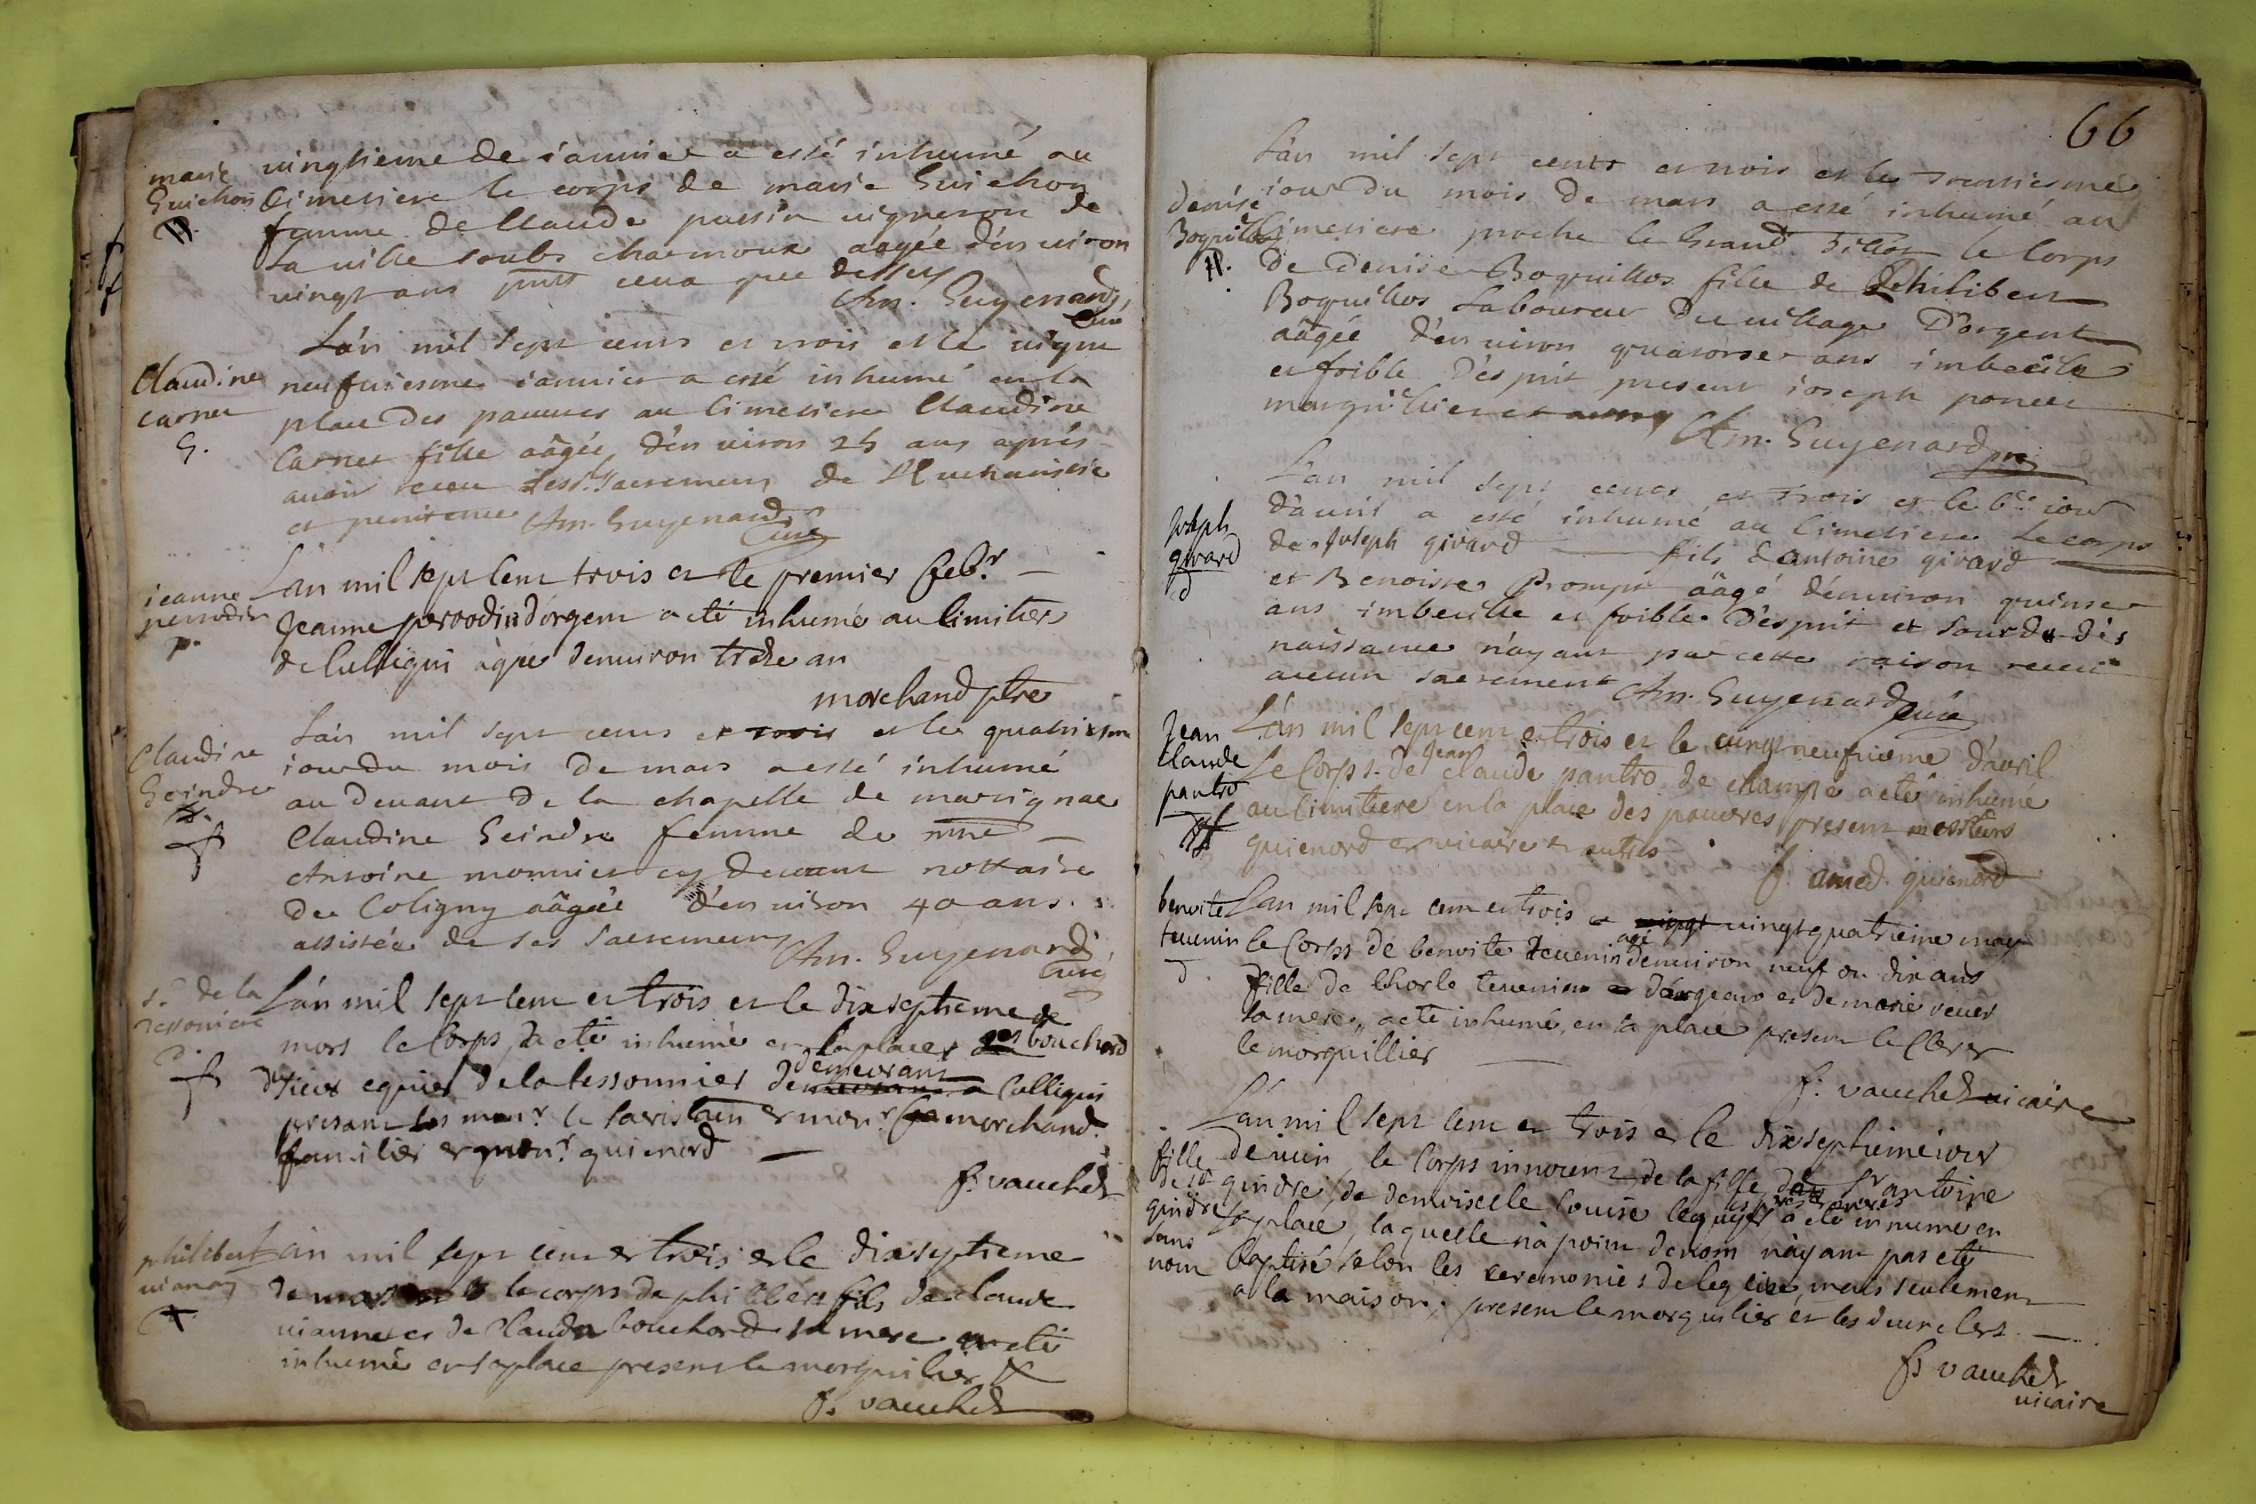 marie
Guichon
vingtieme de ianuier a esté inhumé au
Cimetiere le corps de marie Guichon
femme de Claude vigneron de
la ville soubs charmoux aagée d'enuiron
vingt ans pnts ceux que dessus
Am. Guyenard,
Curé
Claudine
carner
G.
L'an mil sept cents et trois et le vingt
neufuiesme ianuier a esté inhumé en la
place des pauures au Cimetiere Claudine
Carner fille aâgée d'enuiron 25 ans aprés
auoir receu les sts. sacrements de l'Eucharistie
et penitence Am. Guyenard
Curé
jeanne
perrodin
p.
L'an mil sept Cent trois et le premier febr. —
Jeanne peroodin d'orgent a eté inhumé au Cimitier
de Culligni âgee denuiron treze an
marchand ptre
Claudine
Geindre
L'an mil sept cents et trois et le quatriesme
iour du mois de mars a esté inhumé
au deuant de la chapelle de marrignac
Claudine Geindre femme de mre —
Antoine monnier cy deuant nottaire
de Coligny aâgée d'enuiron 40 ans.
assistée de ses sacrements Am. Guyenard
Curé
sr. de la
Tessoniere
L'an mil sept Cent et trois et le dix septieme de
mars le Corps a eté inhumé en la place des bouchard
demeurant
dsieur equier de la tessonnier de Colligni
presant monr. le sacristain et monr. marchand.
familier et monr. guienard —
f: vauchez
philibert
vianay
L'an mil sept cent et trois et le dix septieme
de mars le corps de philibert fils de claude
viannet et de Clauda bouchard sa mere a eté
inhumé en sa place present le marguilier &
f. vauchez
66
denise
Boquillos
L'an mil sept cents et trois et le trentiesme
iour du mois de mars a esté inhumé au
Cimetiere proche le Grand Tillot le Corps
de Denise Boquillos fille de Philibert
Boquillos Laboureur du village D'argent
aâgée d'enuiron quatorse ans imbecille
et foible d'esprit present ioseph poncet
marguillier Am. Guyenard ptre
Joseph
girard
d
L'an mil sept cents et trois et le 6e. iour
d'auril a esté inhumé au Cimetiere Le corps
de Joseph girard — fils d'antoine girard
et Benoiste Prompt aâgé d'enuiron quinse
ans imbecille et foible d'esprit et sourd dés
naissance n'ayant par cette raison receu
aucun sacrement Am. Guyenard Curé
Jean
Claude
pantro
L'an mil sept cent et trois et le uingt neufuieme d'auril
Jean
Le Corps de Claude pantro de champé a eté inhumé
au Cimitiere en la place des pauvres present messieurs
guienard et vicaire et autres
f. amed. guienard
benoite
teuenin
d
L'an mil sept cent et trois et vingt quatrieme may
agé
le Corps de benoite teuenin denuiron neuf ou dix ans
fille de Charle teuenin d'argeant et de marie
sa mere, a eté inhumé, en sa place present le Clerc et
le marguillier —
f: vauchez uicaire
fille
de sr
gindre
sans
nom
L'an mil sept cent et trois et le dixseptieme iour
de iuin le Corps innocent de la fille de sr antoine
gindre, de demoiselle louise a eté inhumé en
sa place, laquelle n'a point de nom n'ayant pas eté
baptisé selon les ceremonies de leglise, mais seulement
a la maison, present le marguilier et les deux clers. —
f: vauchez
vicaire